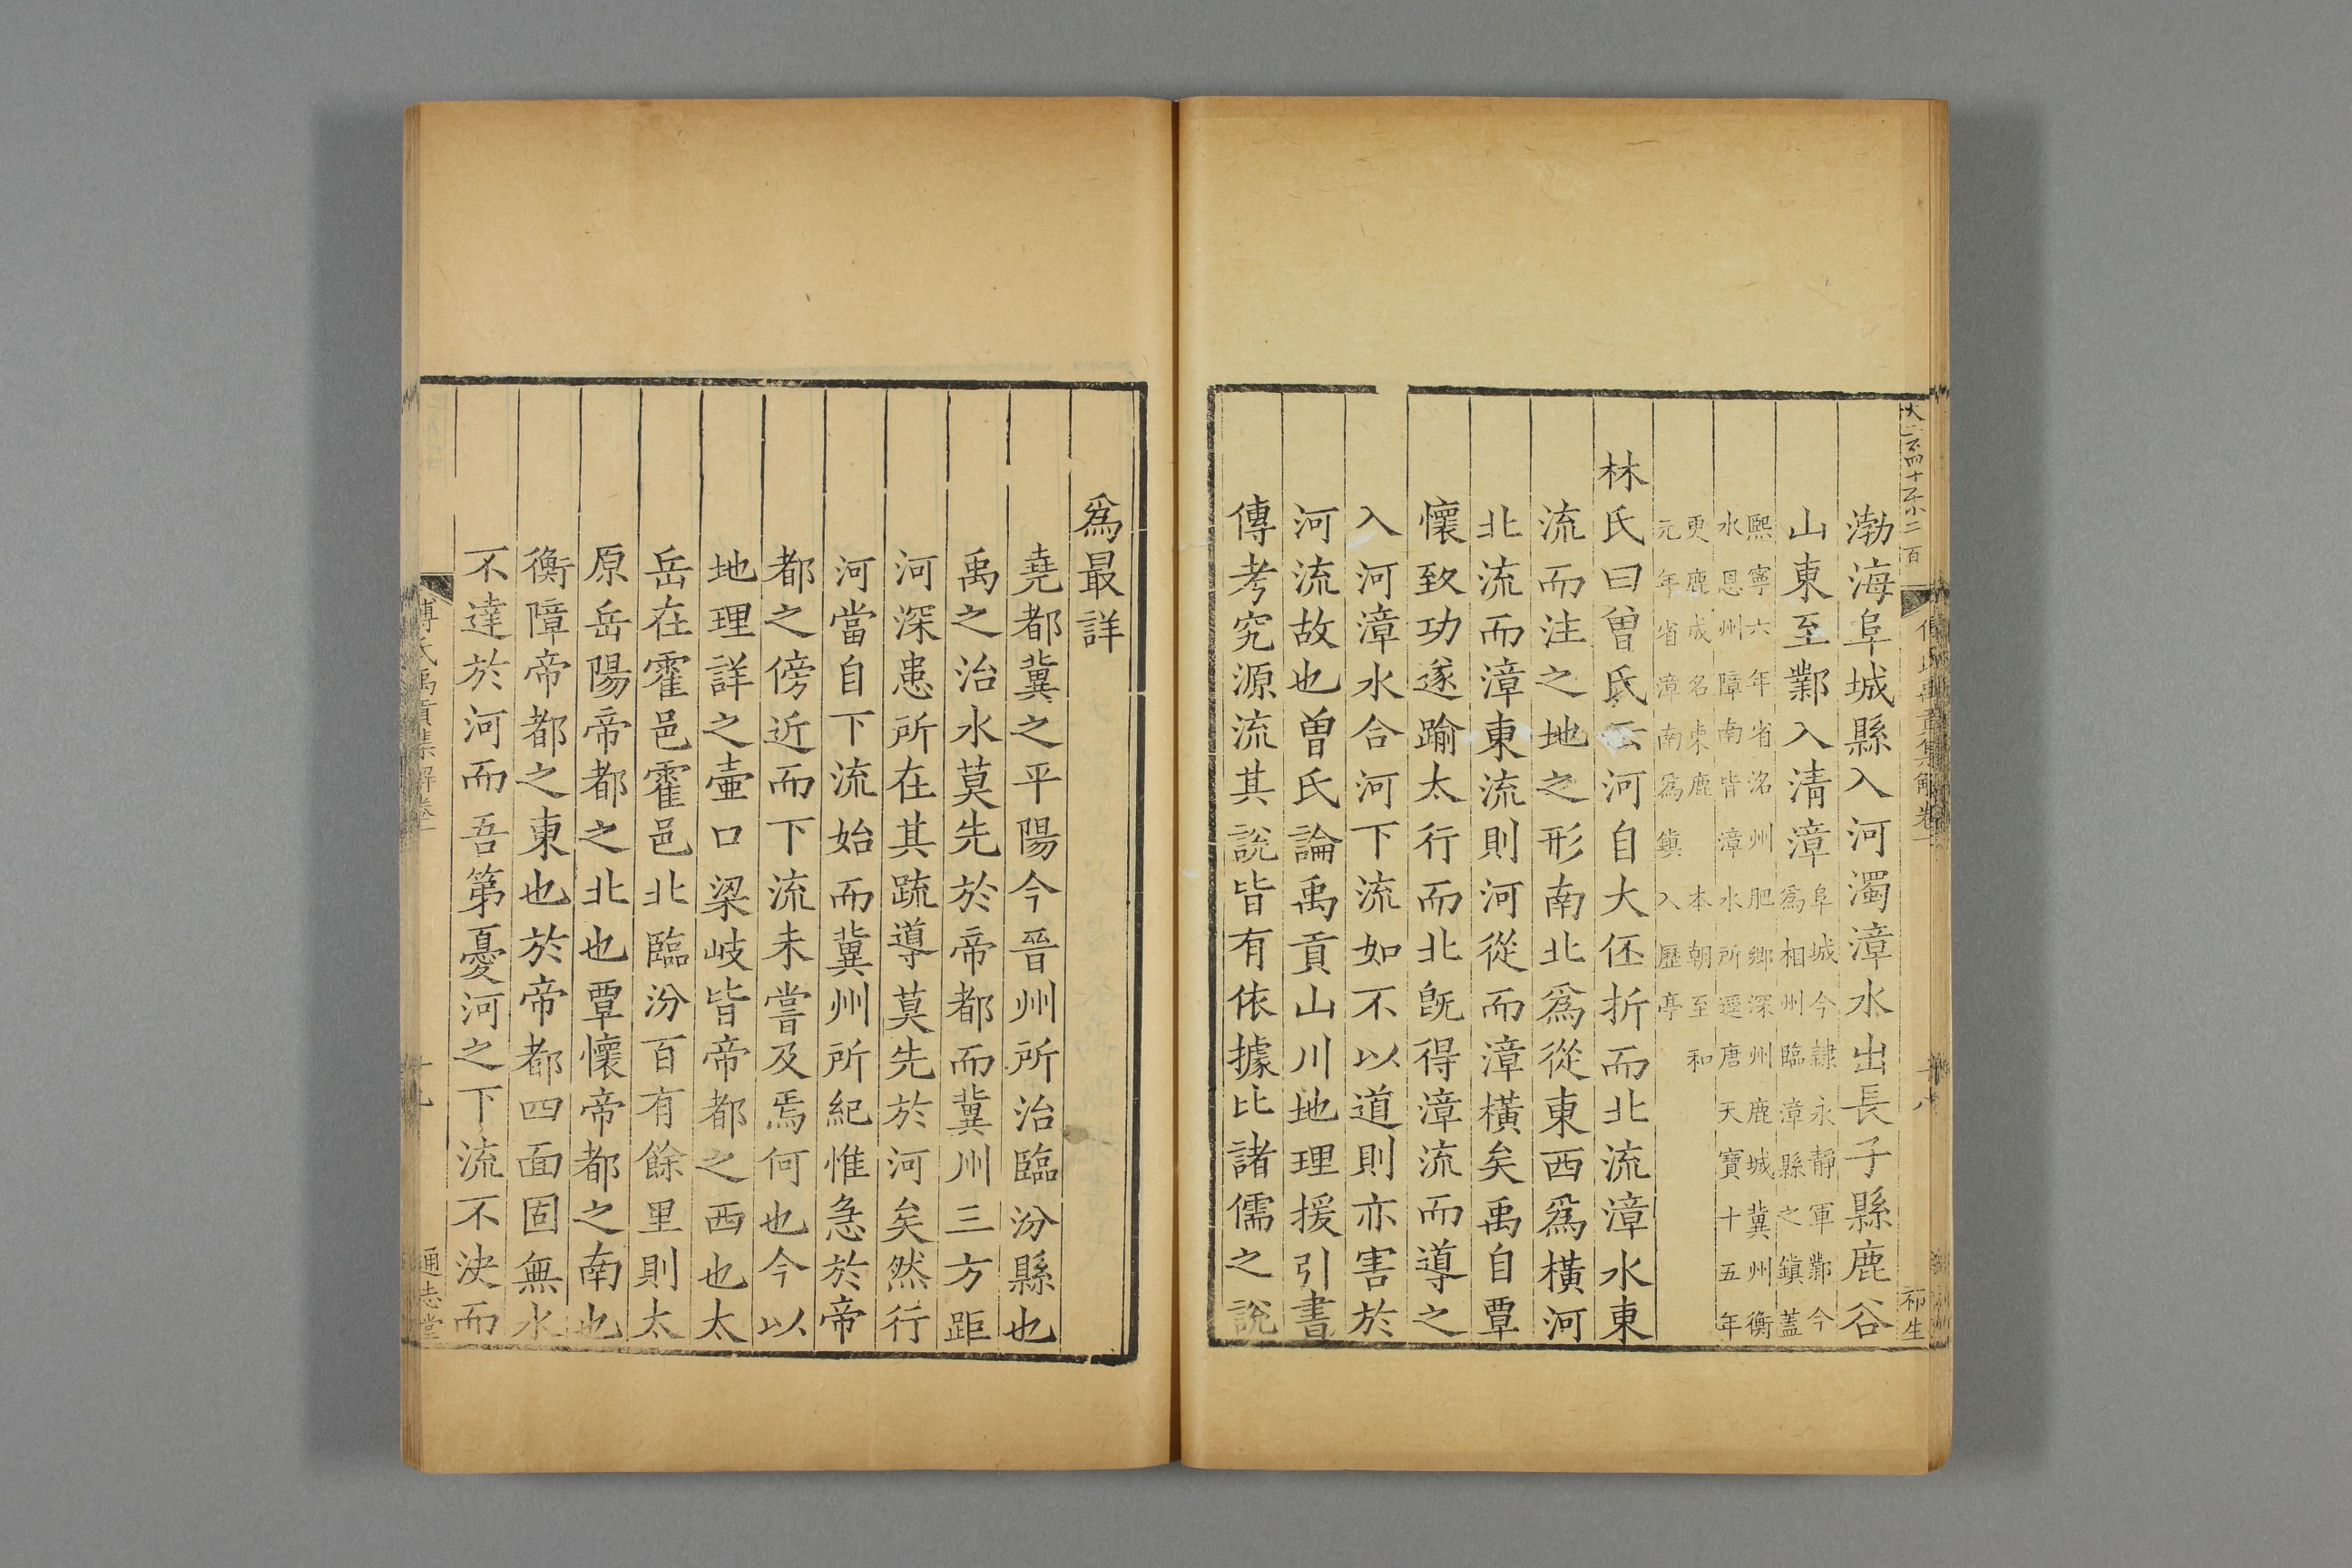 渤海阜城縣入河濁漳水出長子縣鹿谷
山東至鄴入清漳
阜城今隷永靜軍鄴今
爲相州臨漳縣之鎮蓋
熙寧六年省洺州肥鄉深州鹿城冀州衡
水恩州障南皆漳水所逕唐天寶十五年
更鹿成名束鹿本朝至和
元年省漳南爲鎮入歷亭
林氏曰曾氏云河自大伾折而北流漳水東
流而注之地之形南北爲從東西爲橫河
北流而漳東流則河從而漳橫矣禹自覃
懷致功遂踰太行而北旣得漳流而導之
入河漳水合河下流如不以道則亦害於
河流故也曽氏論禹貢山川地理援引書
傳考究源流其說皆有依據比諸儒之說
爲最詳
堯都冀之平陽今晉州所治臨汾縣也
禹之治水莫先於帝都而冀州三方距
河深患所在其疏導莫先於河矣然行
河當自下流始而冀州所紀惟急於帝
都之傍近而下流未嘗及焉何也今以
地理詳之壷口梁岐皆帝都之西也太
岳在霍邑霍邑北臨汾百有餘里則太
原岳陽帝都之北也覃懷帝都之南也
衡障帝都之東也於帝都四面固無水
不達於河而吾第憂河之下流不決而
通志堂